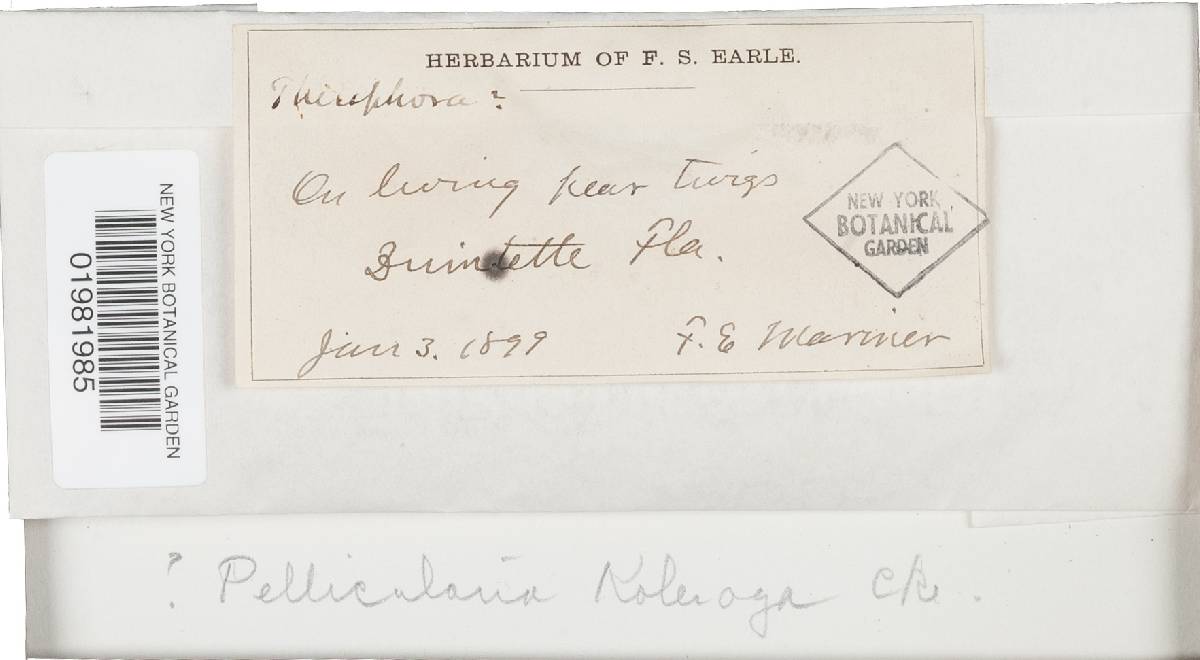 HERBARIUM OF F. S. EARLE.
Thelephora ?
On living pear twigs
Quintette Fla.
Jan 3. 1899 F. E Mariner
NEW YORK
BOTANICAL
GARDEN
NEW YORK BOTANICAL GARDEN
01981985
? Pellicularia Koleroga Cke.